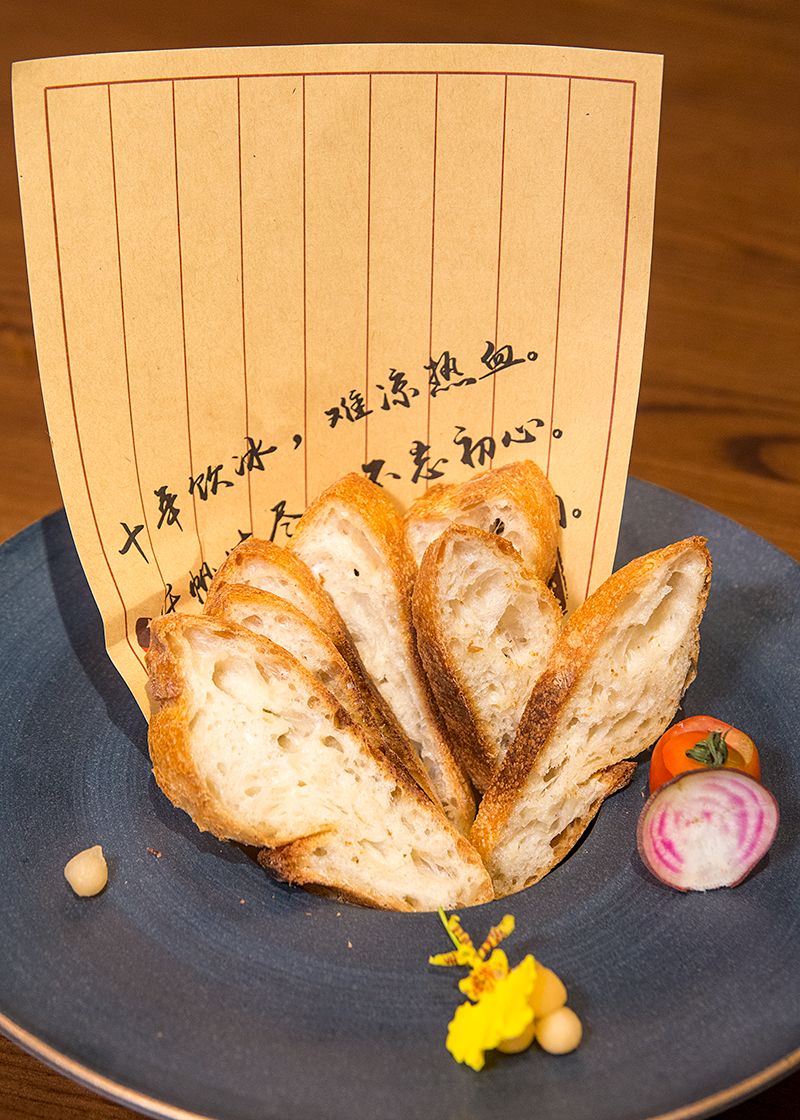 十年饮冰，难凉热血。
千帆 尽 不忘初心。